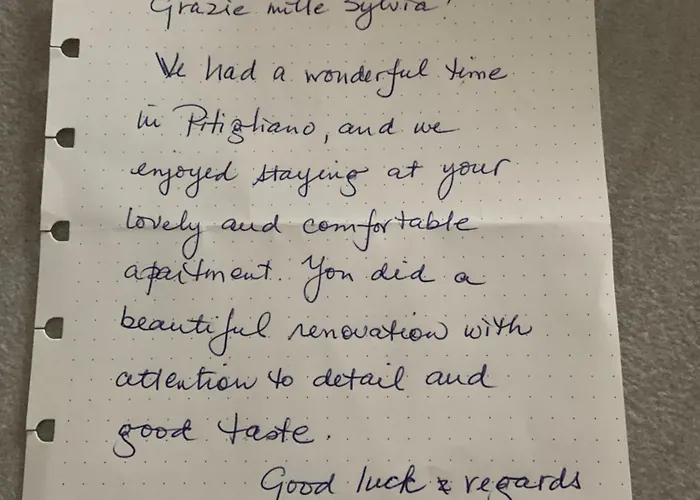 Grazie mille Sylvia!
We had a wonderful time
in Pitigliano, and we
enjoyed staying at your
lovely and comfortable
apartment. You did a
beautiful renovation with
attention to detail and
good taste.
Good luck & regards